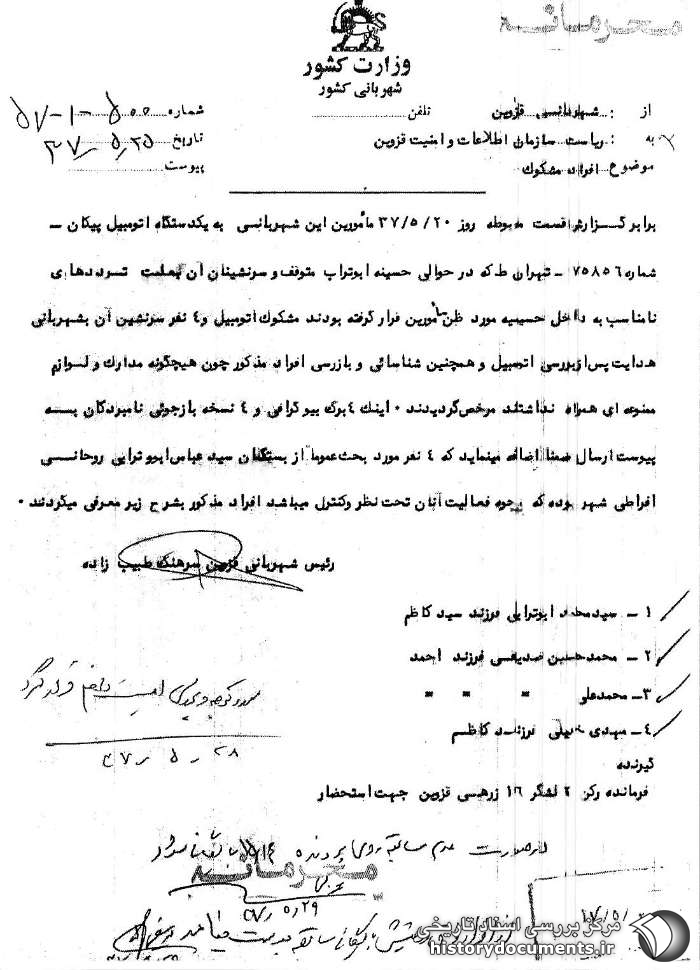 محرمانه
وزارت کشور
شهربانی کشور
از : شهربانی قزوین تلفن شماره ۵۰۰-۱-۵۷
به : ریاست سازمان اطلاعات و امنیت قزوین تاریخ ۳۷٫۵٫۲۵
موضوع افراد مشکوک پیوست
برابر گزارش قسمت مربوطه روز ۳۷/۵/۲۰ مأمورین این شهربانی به یکدستگاه اتومبیل پیکان –
شماره ۷۵۸۵۶ – تهران ط که در حوالی حسینه ابوتراب متوقف و سرنشینان آن بعلت ترددهای
نامناسب به داخل حسیبیه مورد ظن مأمورین قرار گرفته بودند مشکوک اتومبیل و ۴ نفر سرنشین آن بشهربانی
هدایت پس از بررسی اتومبیل و همچنین شناسائی و بازرسی افراد مذکور چون هیچگونه مدارک و لوازم
ممنوعه ای همراه نداشتند مرخص گردیدند ۰ اینک ۴ برگ بیوگرافی و ۴ نسخه بازجوئی نامبردگان به
پیوست ارسال ضمنا اضافه مینماید که ۴ نفر مورد بحث عموما از بستگان سید عباس ابوترابی روحانی
افراطی شهر بوده که نحوه فعالیت آنان تحت نظر و کنترل میباشد افراد مذکور بشرح زیر معرفی میگردند ۰
رئیس شهربانی قزوین سرهنگ طبیب زاده
۱ – سید محمد ابوترابی فرزند سید کاظم
۲ – محمد حسین صدیقی فرزند احمد
۳ – محمد علی " " "
۴ – مهدی فرزند کاظم
۲۸ ٫ ۵ ٫ ۳۷
گیرنده
فرمانده رکن ۲ لشگر ۱۶ زرهی قزوین جهت استحضار
در صورت عدم سابقه روی پرونده
محرمانه
۳۷٫۵٫۲۹
مرکز بررسی اسناد تاریخی
historydocuments.ir